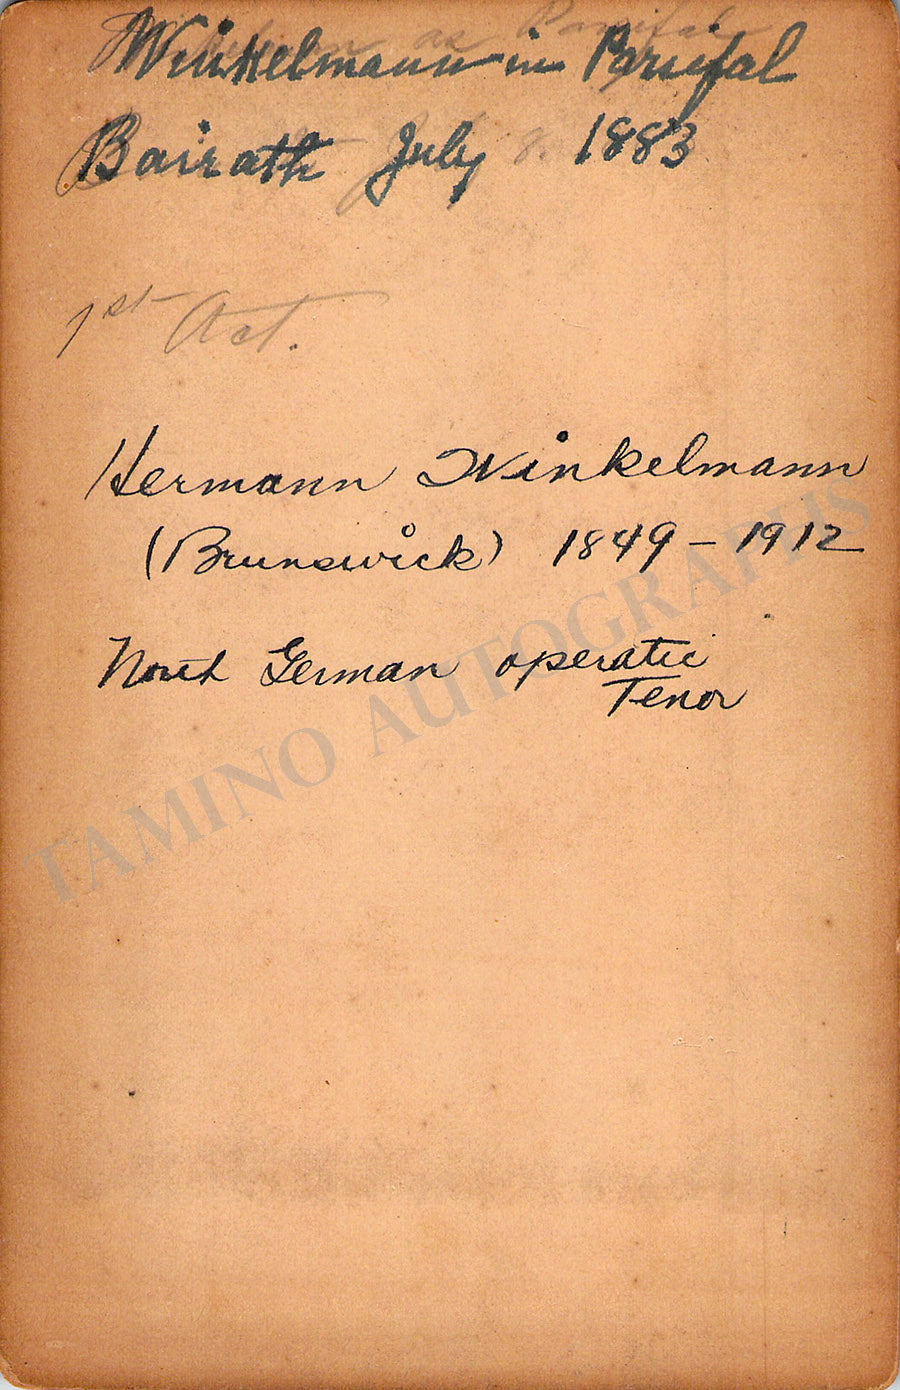 Winkelmann in Parsifal
Bairath July 1883
1st Act.
Hermann Winkelmann
(Brunswick) 1849 – 1912
North German operatic
Tenor
TAMINO AUTOGRAPHS